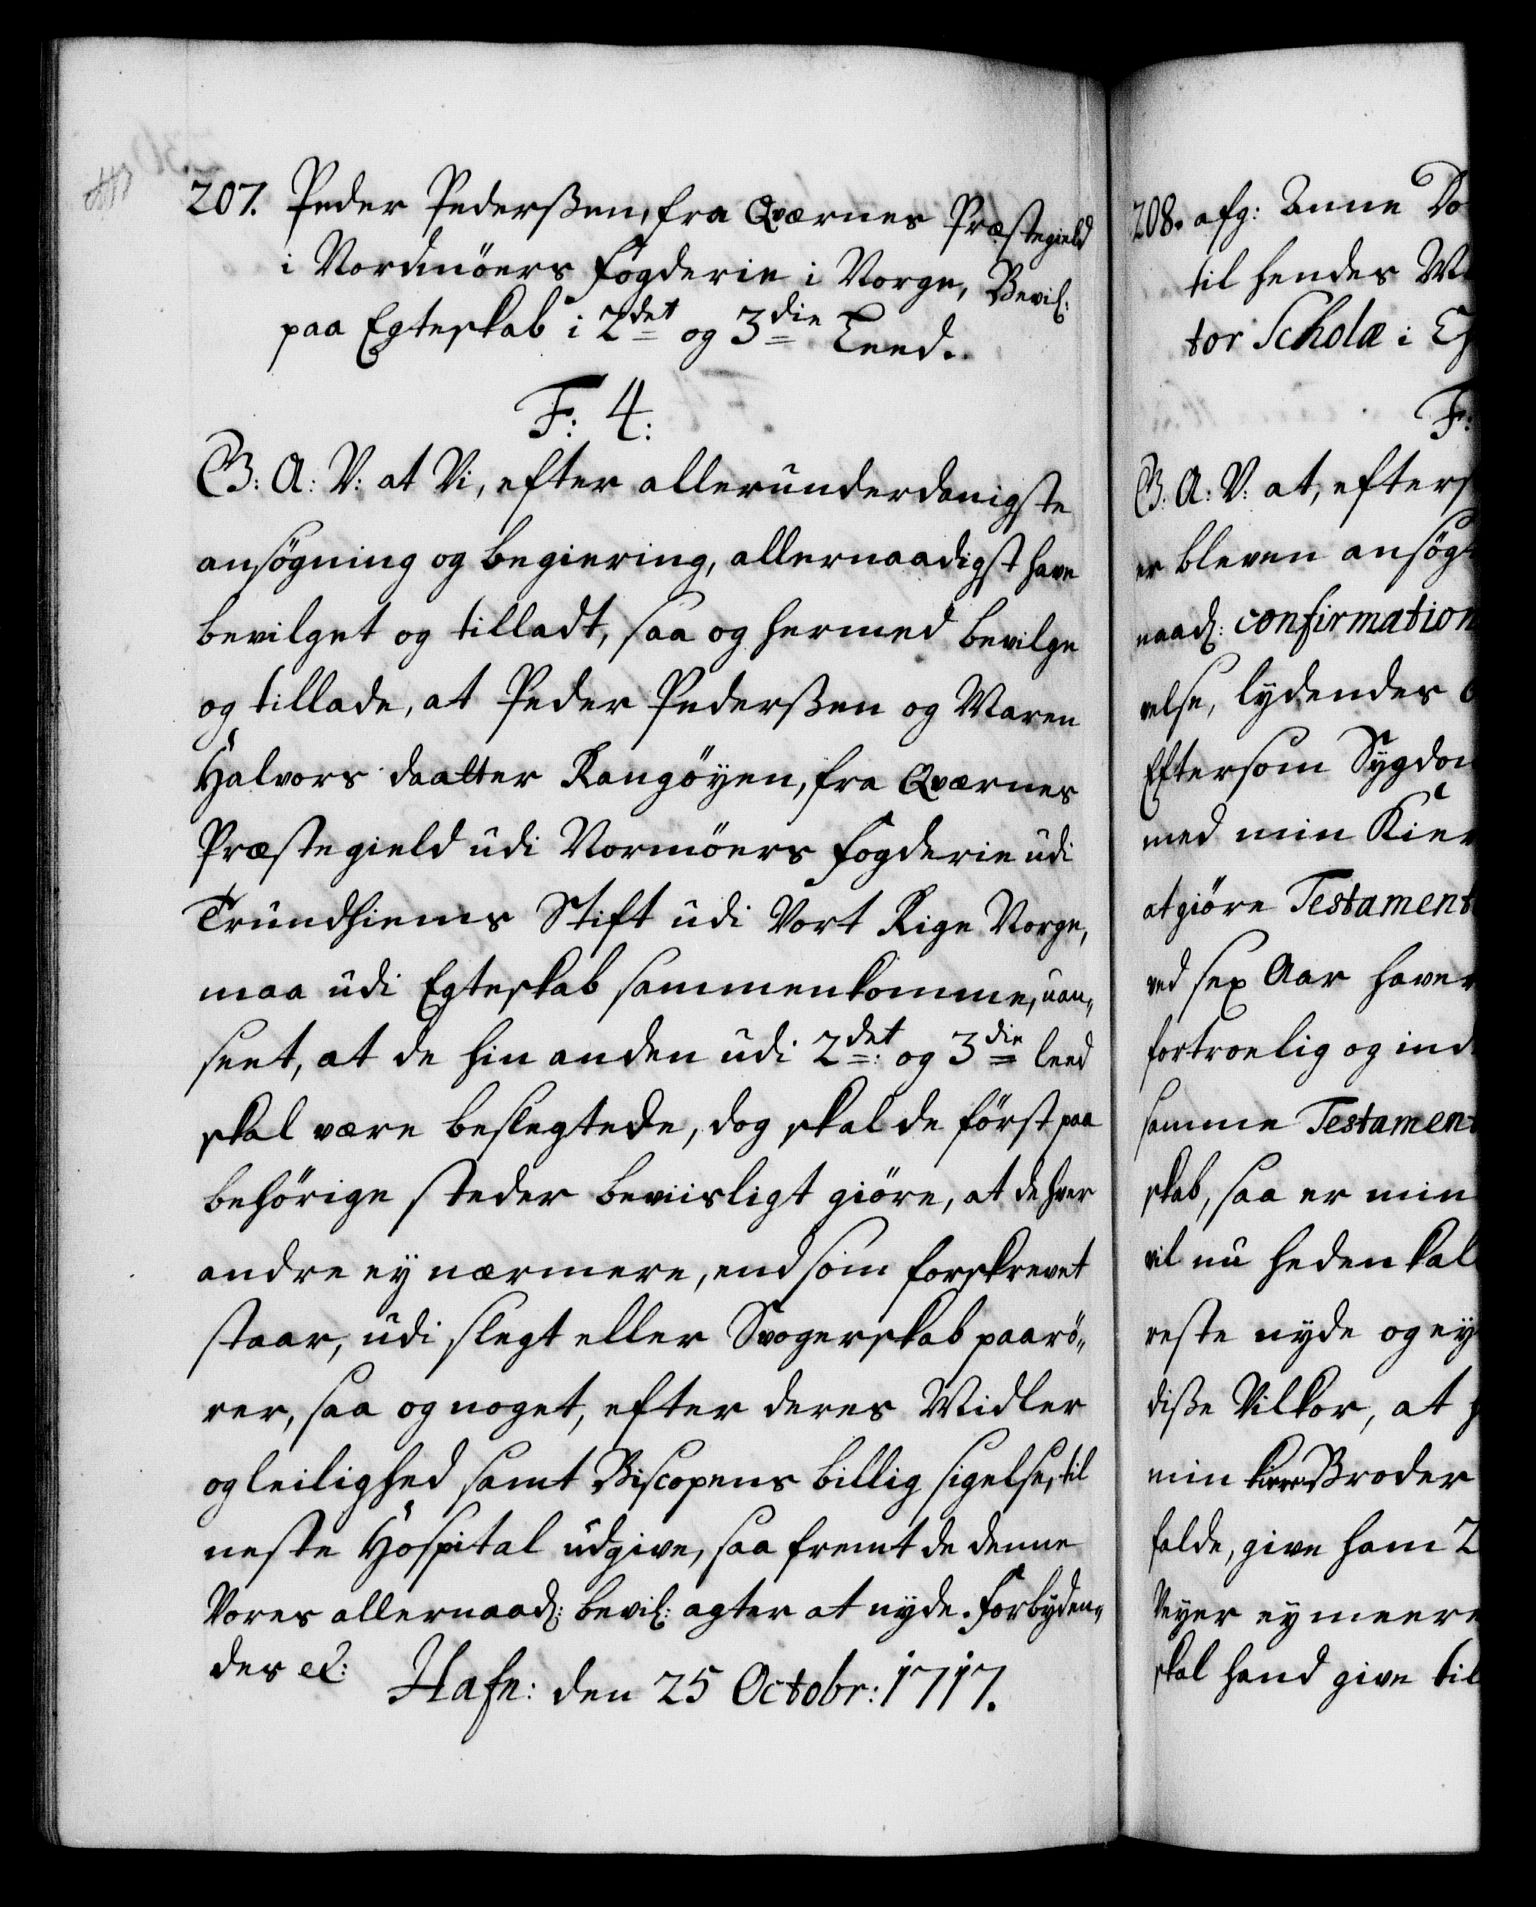 207. Peder Pederßen, fra Qværnes Præstegield
i Nordmöers Fogderie i Norge, Bevil:
paa Egteskab i 2det og 3die Leed.
F: 4:
G: A: V: at Vi, efter allerunderdanigste
ansögning og begiering, allernaadigst have
bevilget og tilladt, saa og hermed bevilge
og tillade, at Peder Pederßen og Maren
Halvors daatter Rangöyen, fra Qværnes
Præstegield udi Normöers Fogderie udi
Trundhiems Stift udi Vort Rige Norge,
maa udi Egteskab sammenkomme, uan„
seet, at de hinanden udi 2det: og 3die leed
skal være beslegtede, dog skal de först paa
behörige steder beviisligt giöre, at de hver
andre ey nærmere, end som forskrevet
staar, udi slegt eller Svogerskab paarö„
rer, saa og noget, efter deres Midler
og leilighed samt Biscopens billig sigelse, til
neste Hospital udgive, saa fremt de denne
Vores allernaad: bevil: agter at nyde. Forbyden„
des etc:
Hafn: den 25 Octobr: 1717.
208. afg: Anne Do
til hendes
tor Scholæ i
F:
G: A: V: at, efters
er bleven ansögt
naad: confirmation
velse, lydendes
Eftersom Sygdom
med min Kier
at giöre Testament
ved sex Aar haver
fortroelig og ind
samme Testament
skab, saa er min
vil nu heden kal
reste nyde og ey
diße Vilkor, at
min kiere Broder
falde, give ham 2
Veyer ey meere
skal hand give til